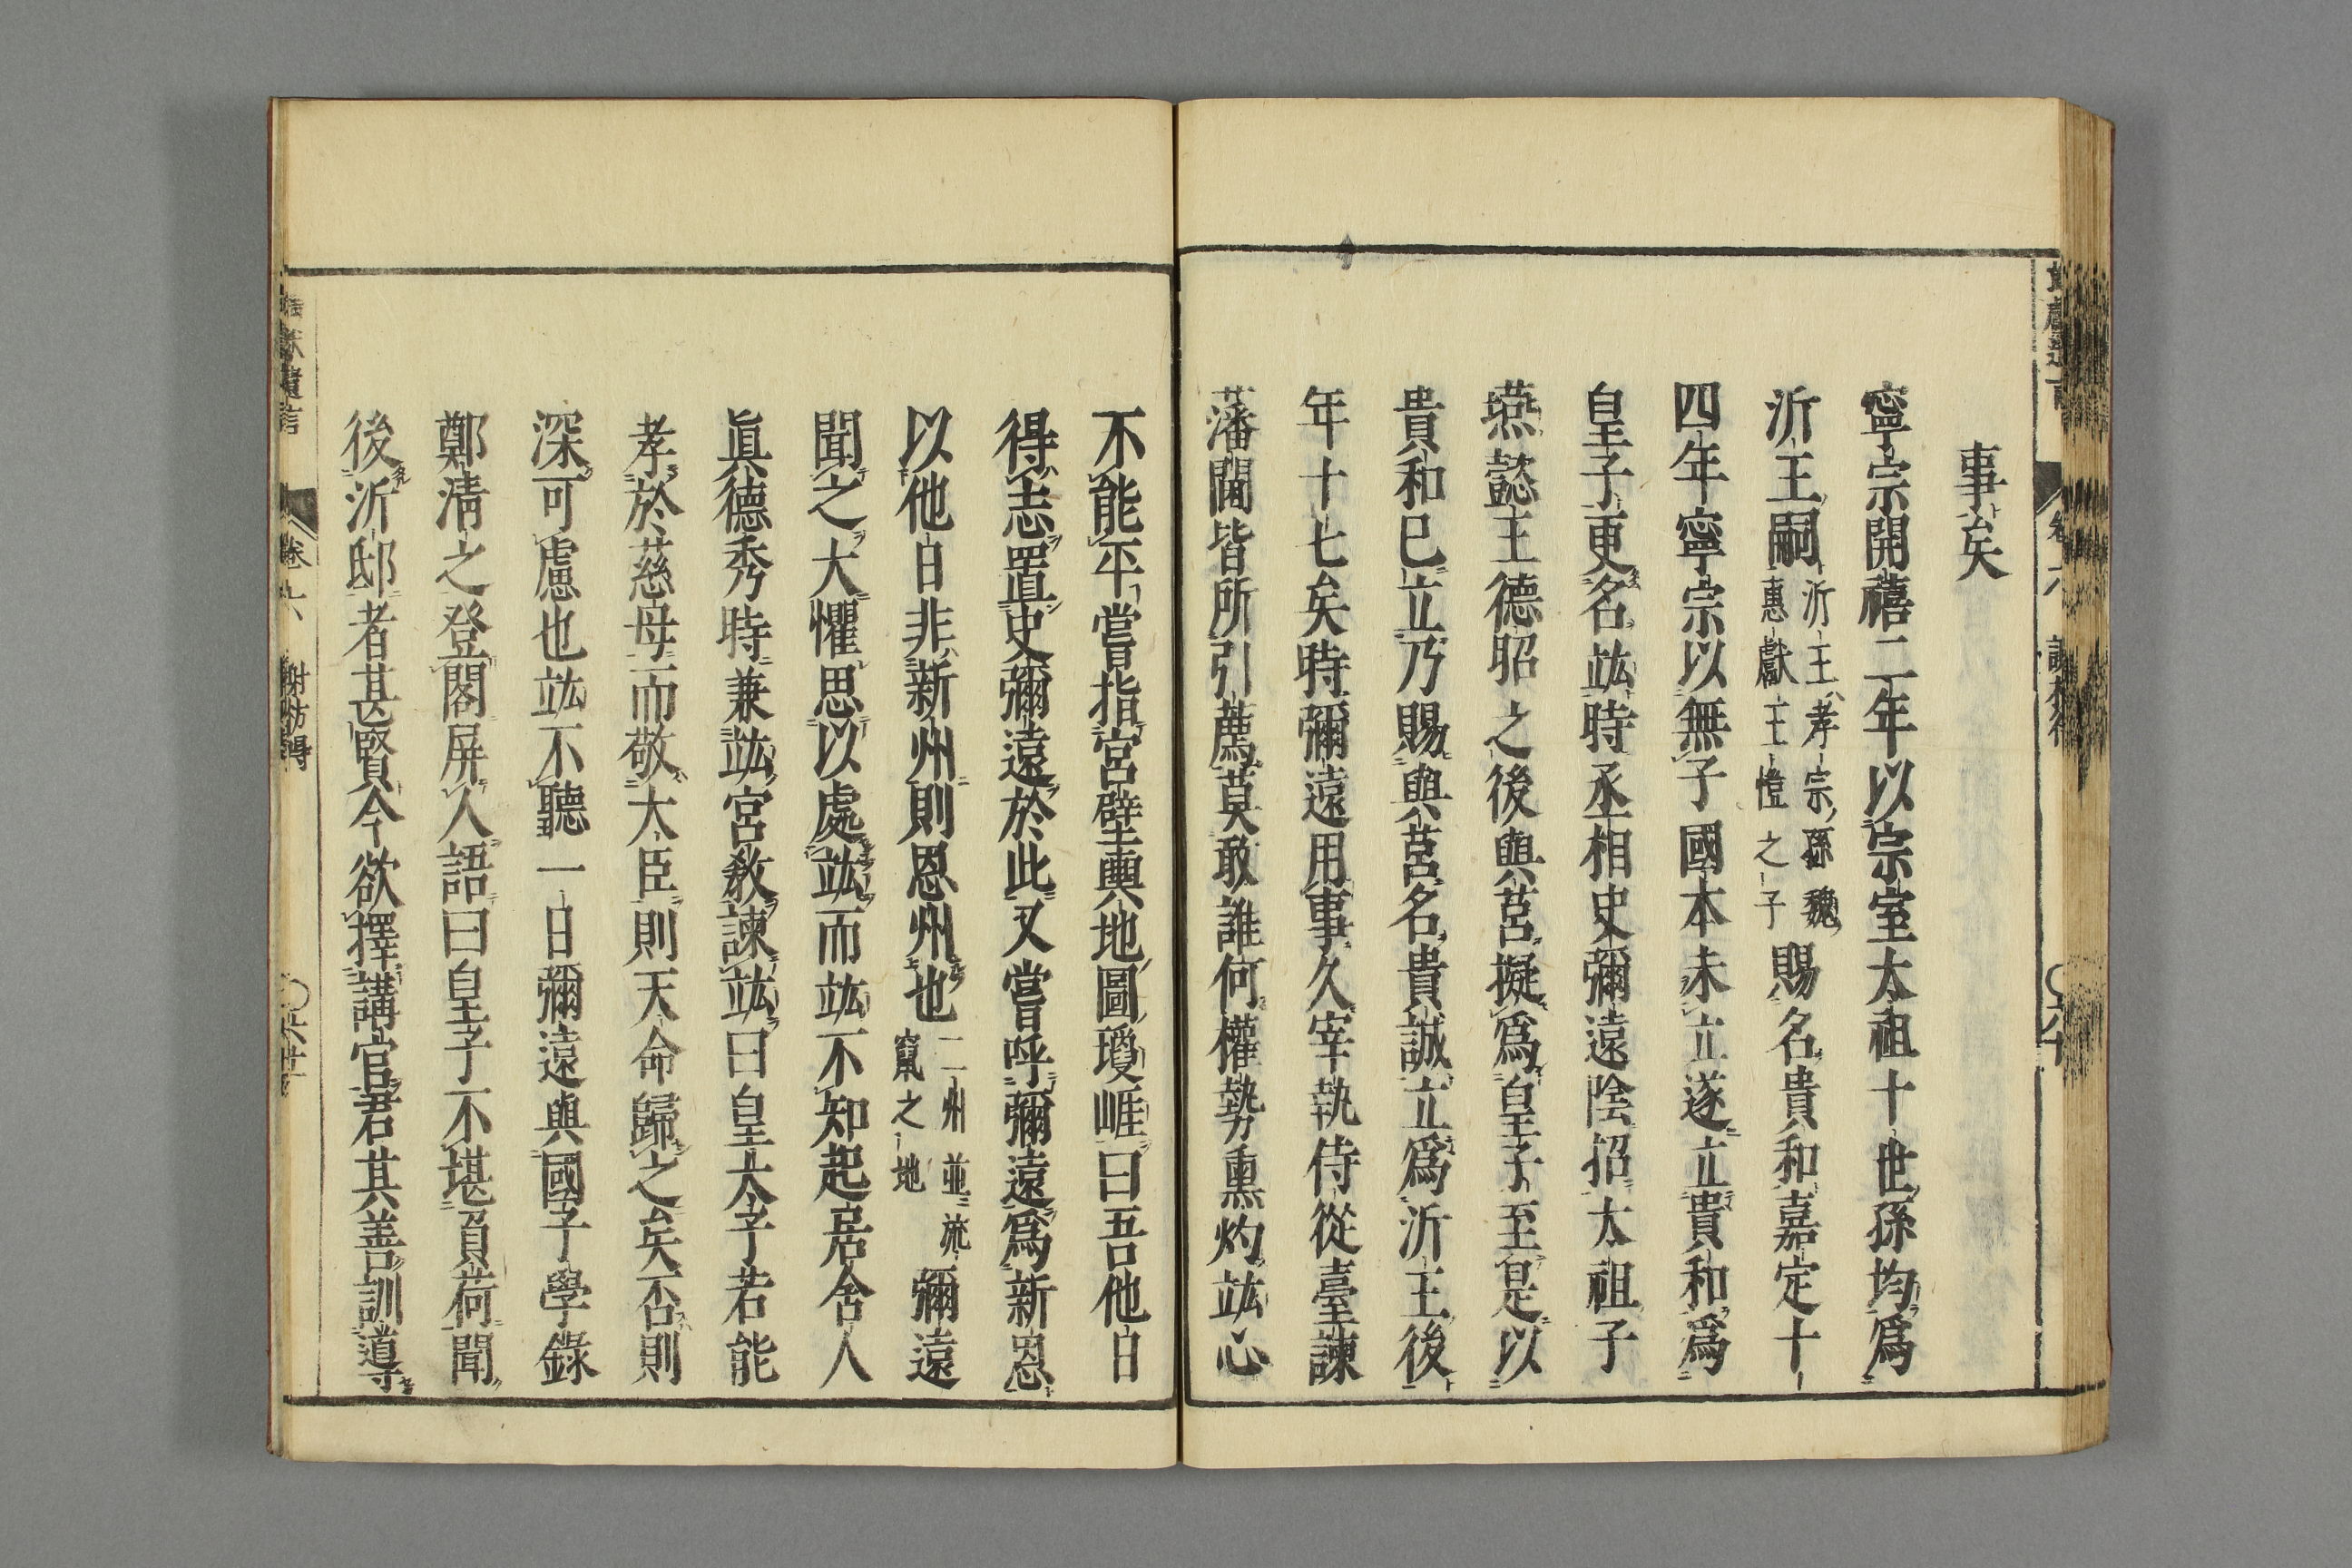 事矣
寧宗開禧二年以宗室太祖十世孫均爲
沂王嗣沂王孝宗孫魏惠獻王愷之子賜名貴和嘉定十
四年寧宗以無子國本未立遂立貴和爲
皇子更名竑時丞相史彌遠陰招太祖子
燕懿王德昭之後與莒擬爲皇子至是以
貴和已立乃賜與莒名貴誠立爲沂王後
年十七矣時彌遠用事久宰執侍從臺諫
藩閫皆所引薦莫敢誰何權勢熏灼竑心
不能平嘗指宮壁輿地圖瓊崕曰吾他日
得志置史彌遠於此又嘗呼彌遠爲新恩
以他日非新州則恩州也二州並流竄之地彌遠
聞之大懼思以處竑而竑不知起居舍人
眞德秀時兼竑宮敎諫竑曰皇太子若能
孝於慈母而敬大臣則天命歸之矣否則
深可慮也竑不聽一日彌遠與國子學錄
鄭淸之登閣屏人語曰皇子不堪負荷聞
後沂邸者甚賢今欲擇講官君其善訓導
獻遺言 卷六 謝枋得